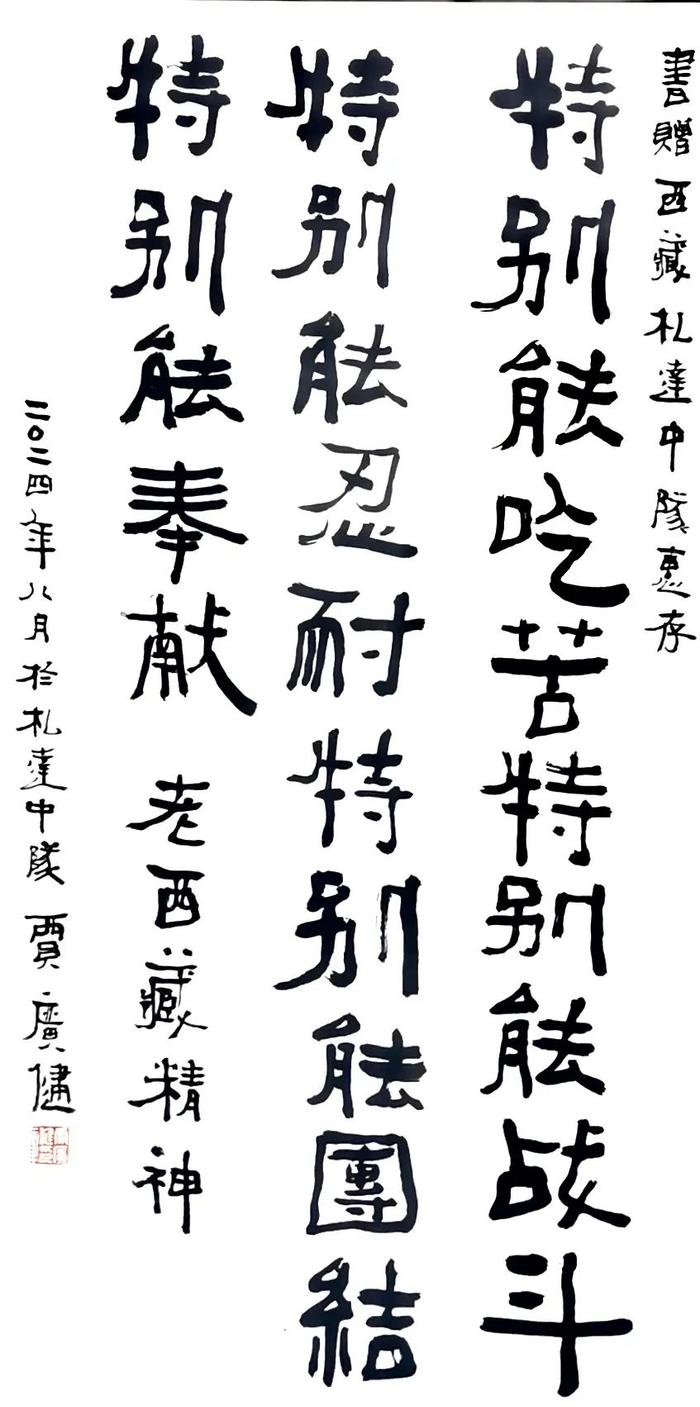 書贈西藏札達中隊惠存
特别能吃苦特别能战斗
特别能忍耐特别能團結
特别能奉献 老西藏精神
二〇二四年八月於札達中隊 賈廣健